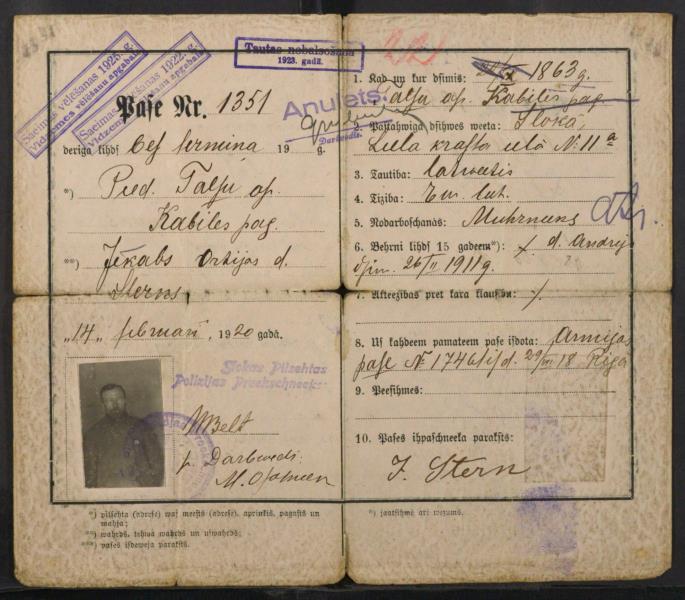 Saeimas vēlēšanas 1925. g.
Vidzemes vēlēšanu apgabals
Saeimas vēlēšanas 1922. g.
Vidzem
Tautas nobalsošana
1923. gadā.
Paſe Nr. 1351
deriga lihdſ beſ termiņa 19 g.
*) Pied. Talſu ap.
Kabiles pag.
**) Jēkabs Ortijas d.
Sterns
"14" februari, 1920 gadā.
Slokas Pilsehtas
Polizijas Preekschneeks
p. Darbwedi:
*) pilſehta (adreſe) waj meeſts (adreſe), aprinkis, pagaſts un
mahja;
**) wahrds, tehwa wahrds un uſwahrds;
***) paſes iſdeweja parakſts.
22.
Anulets.
Darbwedis.
1. Kad un kur dſimis: 1863 g.
Talſu ap. Kabiles pag.
2. Paſtahwigā dſihwes weeta: Slokā,
Leela kraſta ielā № 11a
3. Tautiba: latweetis
4. Tiziba: Ew. lut.
5. Nodarboſchanās: Muhrneeks
6. Behrni lihdſ 15 gadeem*): d. Andrejs
dſim. 26/II 1911 g.
7. Atteezibas pret kara klauſibu:
8. Uſ kahdeem pamateem paſe iſdota: Armijas
paſe № 1746 iſd. 29/VII 18 Rigā
9. Peeſihmes:
10. Paſes ihpaſchneeka parakſts:
J. Stern
*) jaatſihmē arī wezums.